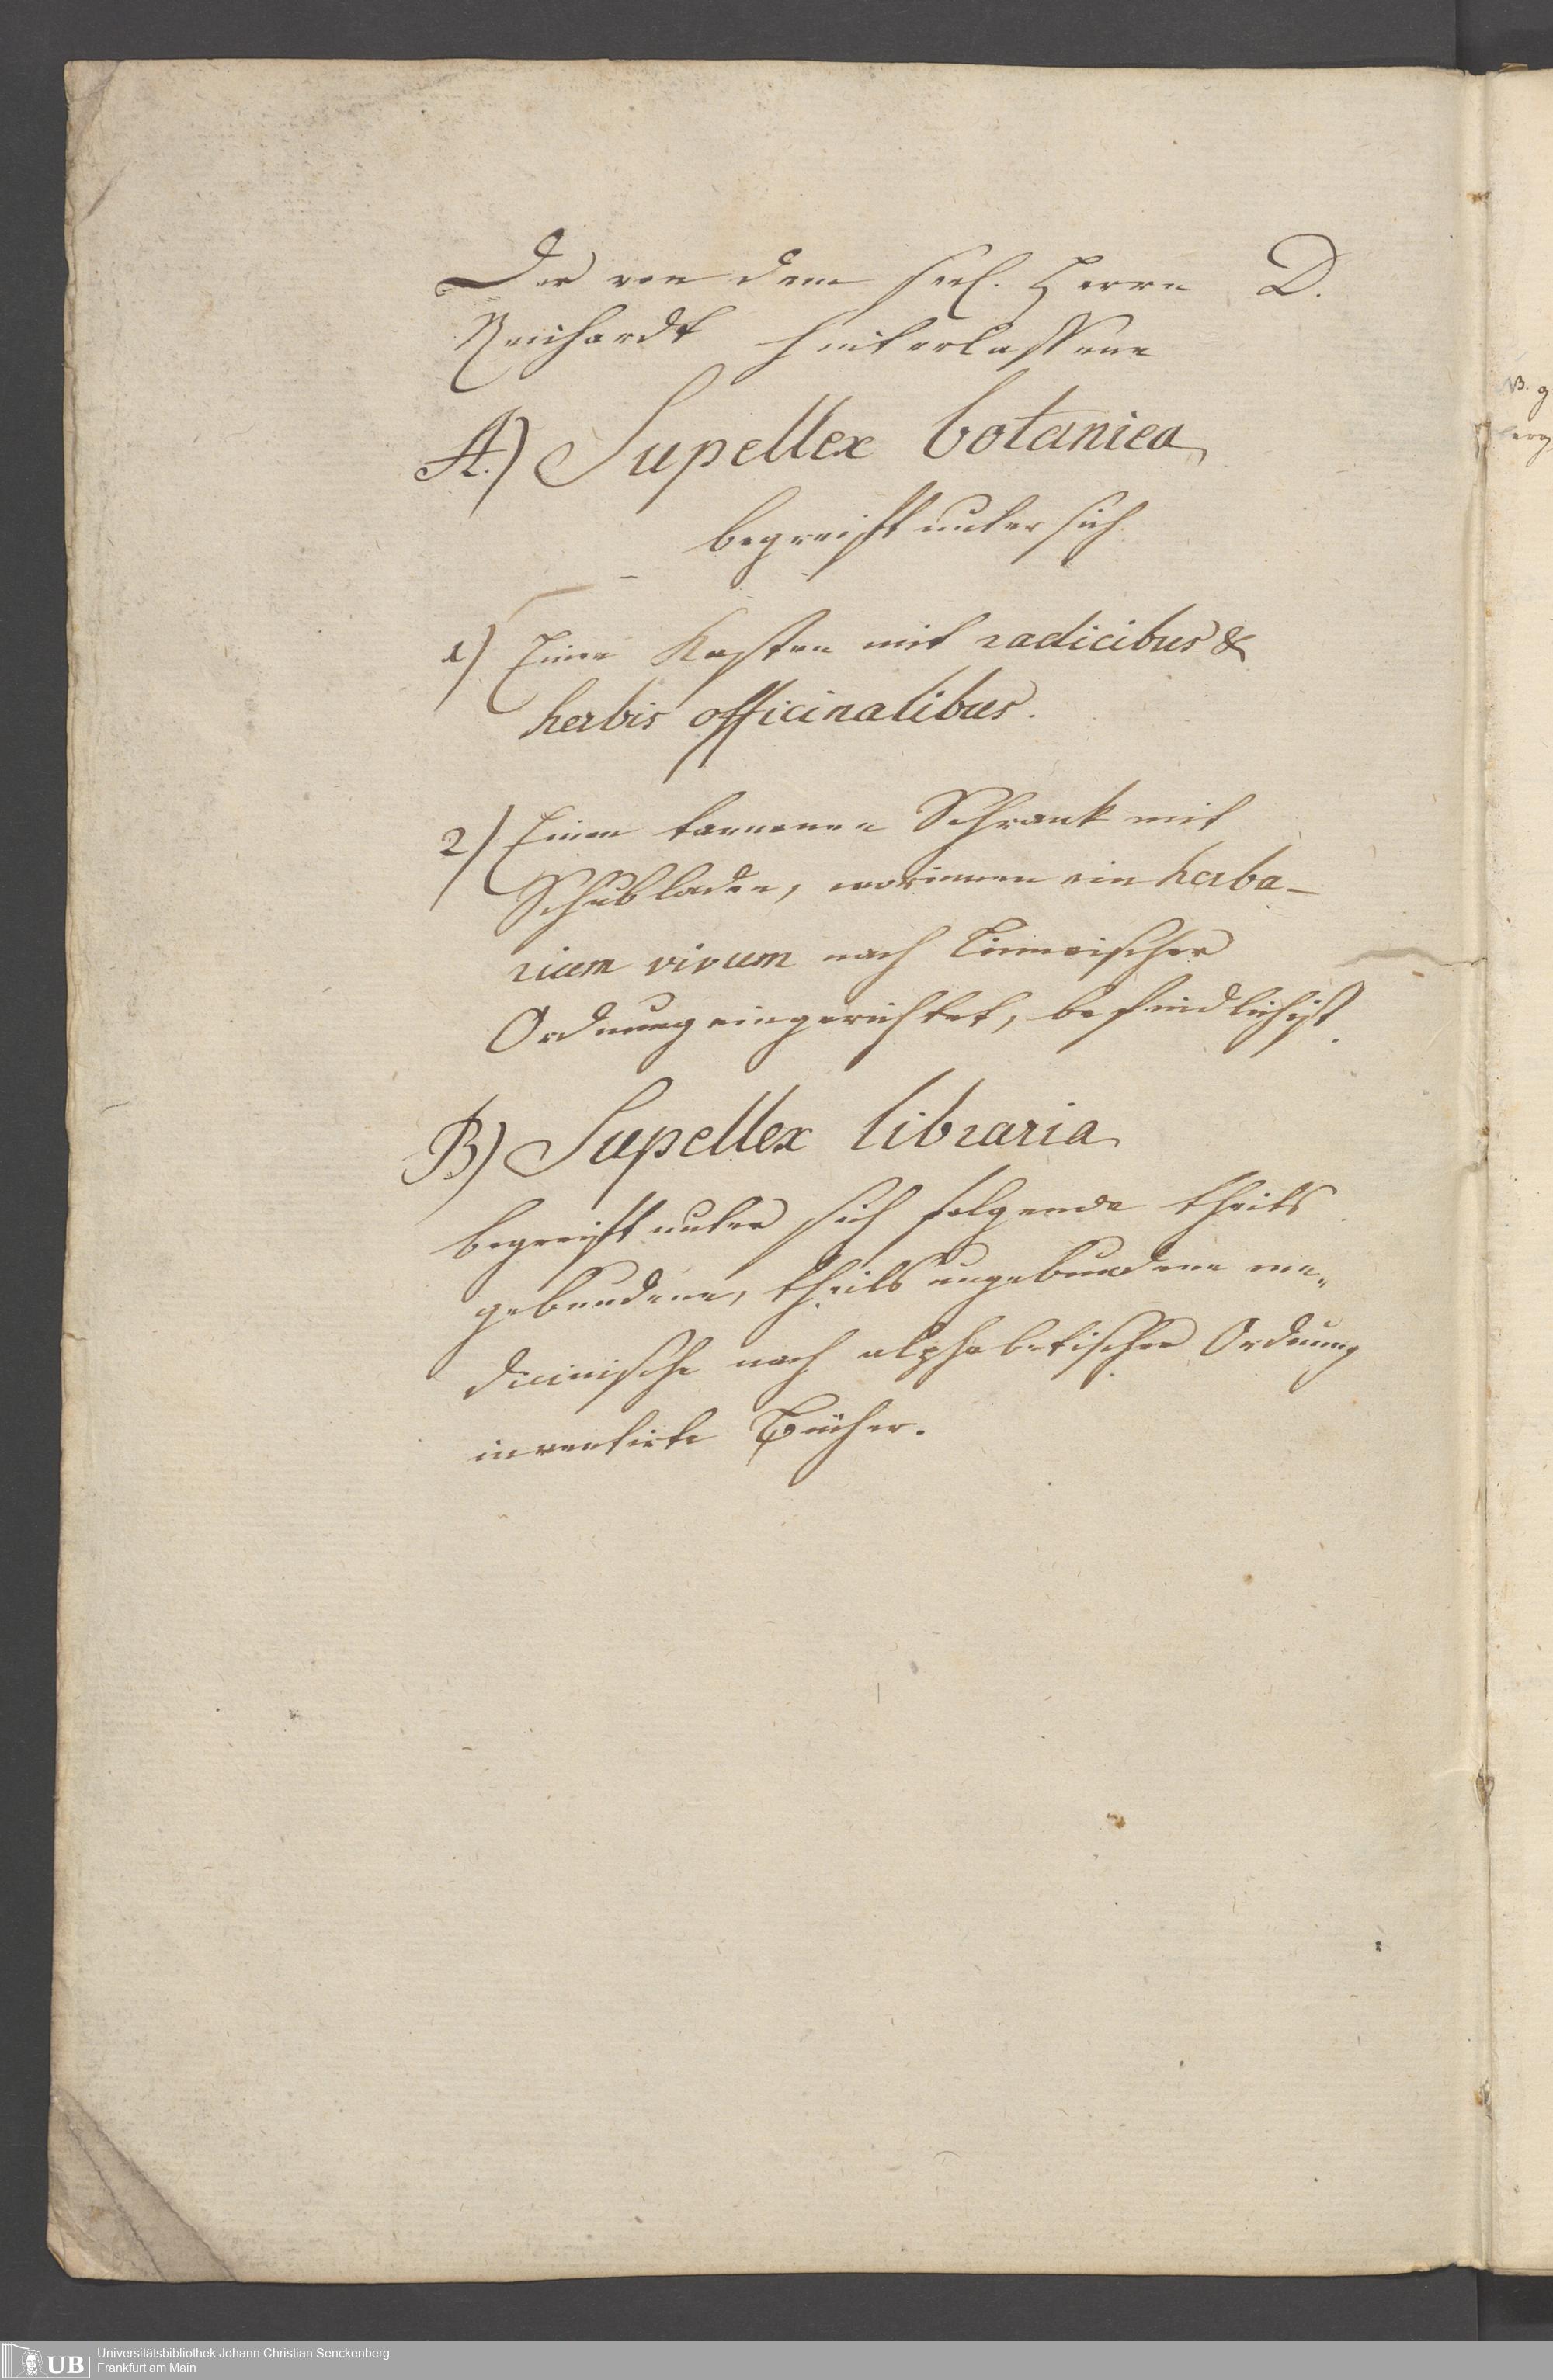 Der von dem seel. Herrn D.
Reichardt hinterlassene
A.) Supellex botanica
begreifft unter sich
1) Einen Kasten mit radicibus &
herbis officinalibus.
2) Einen tannenen Schrank mit
Schubladen, worinnen ein herba-
rium vivum nach Linneischer
Ordnung eingerichtet, befindlich ist.
B) Supellex libraria
begreifft unter sich folgende theils
gebundene, theils ungebundene me-
dicinische nach alphabetischer Ordnung
inventirte Bücher.
NB. g
UB
Universitätsbibliothek Johann Christian Senckenberg
Frankfurt am Main